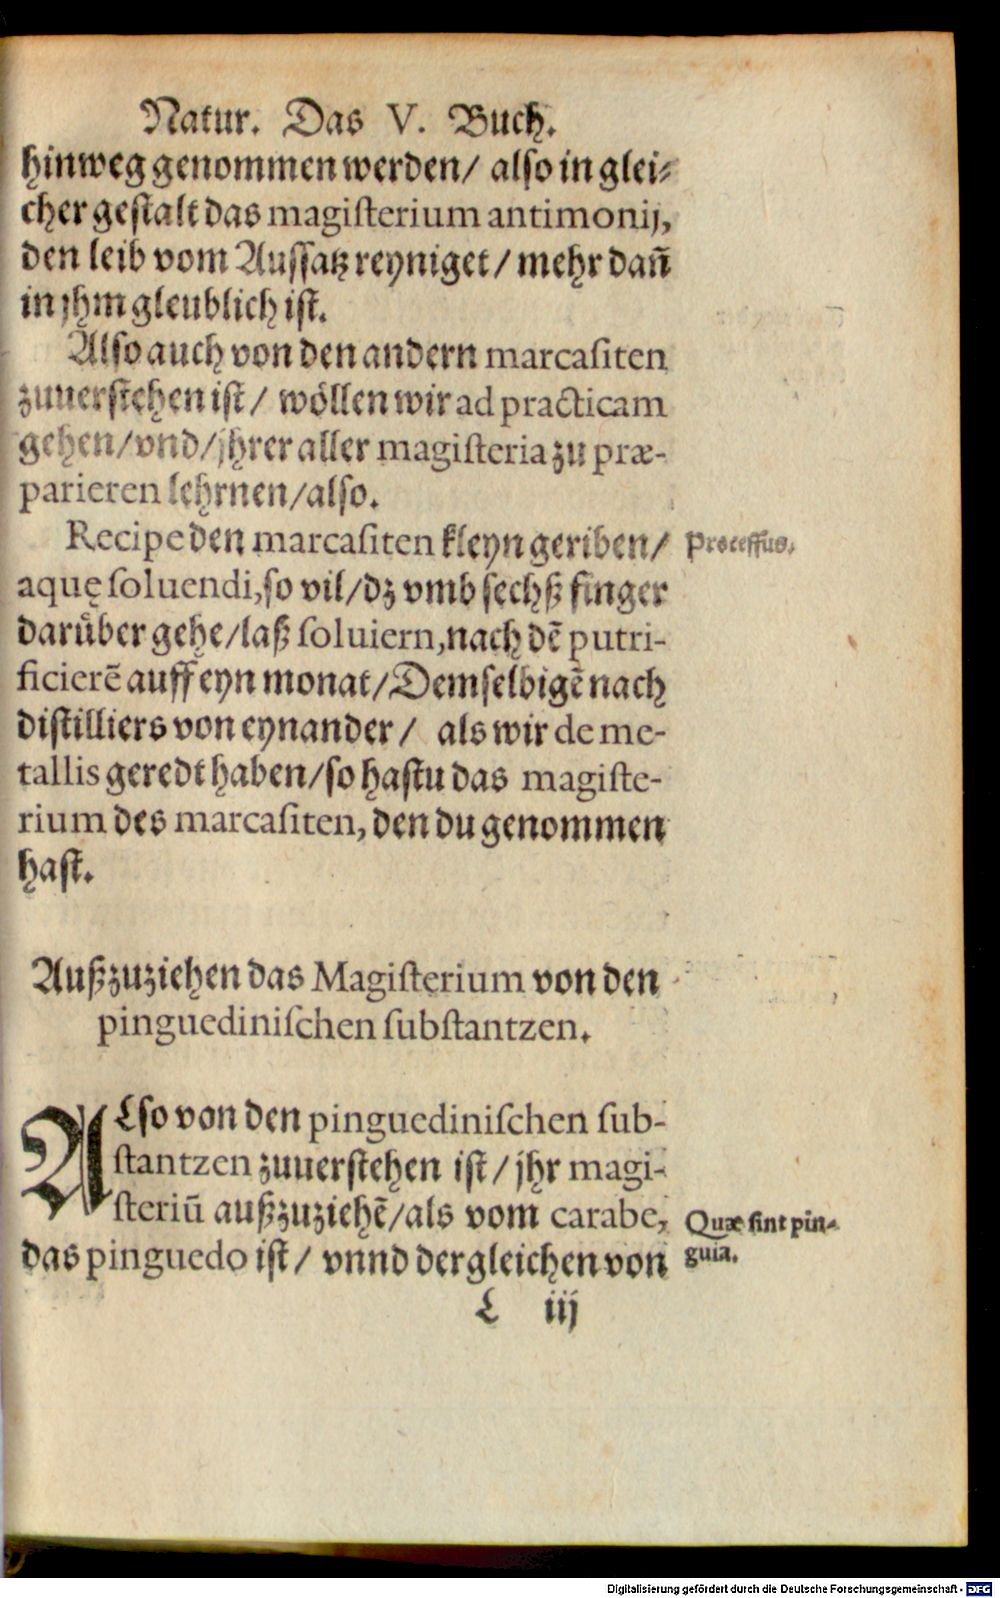 Natur. Das V. Buch.
hinweg genommen werden/ also in glei⸗
cher gestalt das magisterium antimonij,
den leib vom Aussatz reyniget/ mehr dañ
in jhm gleublich ist.
Also auch von den andern marcasiten
zuuerstehen ist/ wöllen wir ad practicam
gehen/vnd/jhrer aller magisteria zu præ-
parieren lehrnen/also.
Recipe den marcasiten kleyn geriben/
Processus.
aquę soluendi, so vil/dz vmb sechß finger
darůber gehe/laß soluiern, nach dẽ putri-
ficierẽ auff eyn monat/Demselbigẽ nach
distilliers von eynander/ als wir de me-
tallis geredt haben/so hastu das magiste-
rium des marcasiten, den du genommen
hast.
Außzuziehen das Magisterium von den
pinguedinischen substantzen.
ALso von den pinguedinischen sub-
stantzen zuuerstehen ist/ jhr magi-
steriũ außzuziehẽ/als vom carabe,
Quæ sint pin-
das pinguedo ist/ vnnd dergleichen von
guia.
L iij
Digitalisierung gefördert durch die Deutsche Forschungsgemeinschaft - DFG